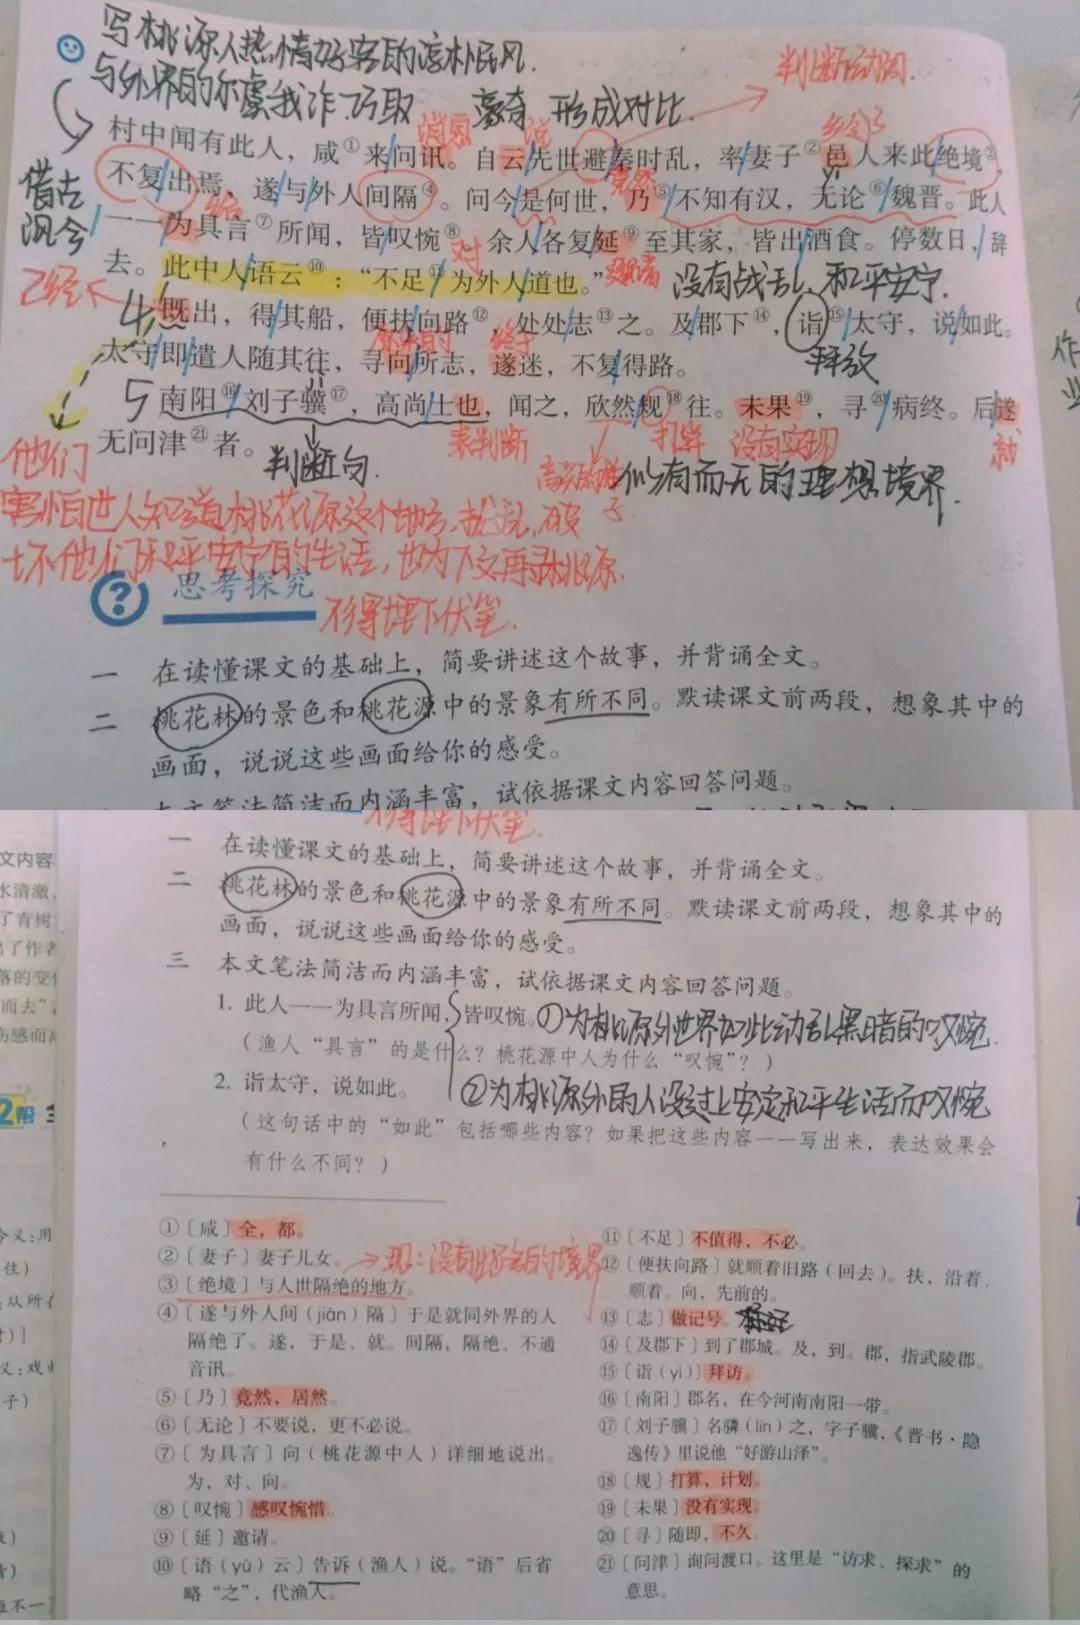 写桃源人热情好客的淳朴民风.
与外界的尔虞我诈、巧取豪夺 形成对比.
判断动词.
消息 说
村中闻有此人，咸①来问讯。自云先世避秦时乱，率妻子②邑人来此绝境③，
借古
讽今
竟然
不复出焉，遂与外人间隔④。问今是何世，乃⑤不知有汉，无论⑥魏晋。此人
一一为具言⑦所闻，皆叹惋⑧。余人各复延⑨至其家，皆出酒食。停数日，辞
对
去。此中人语云⑩：“不足⑪为外人道也。”
邀请
没有战乱、和平安宁.
已经
4
既出，得其船，便扶向路⑫，处处志⑬之。及郡下⑭，诣⑮太守，说如此。
拜放
太守即遣人随其往，寻向所志，遂迷，不复得路。
终于
5
南阳⑯刘子骥⑰，高尚士也，闻之，欣然规⑱往。未果⑲，寻⑳病终。后遂
无问津㉑者。
判断句.
表判断
打算
没有实现
就
似有而无的理想境界.
他们
害怕世人知道桃花源这个地方，扰乱，破
坏他们和平安宁的生活，也为下文再寻桃源
不得埋下伏笔.
思考探究
一 在读懂课文的基础上，简要讲述这个故事，并背诵全文。
二 桃花林的景色和桃花源中的景象有所不同。默读课文前两段，想象其中的
画面，说说这些画面给你的感受。
本文笔法简洁而内涵丰富，试依据课文内容回答问题。
作
业
不得埋下伏笔.
一 在读懂课文的基础上，简要讲述这个故事，并背诵全文。
二 桃花林的景色和桃花源中的景象有所不同。默读课文前两段，想象其中的
画面，说说这些画面给你的感受。
三 本文笔法简洁而内涵丰富，试依据课文内容回答问题。
1. 此人一一为具言所闻，皆叹惋。
①为桃源外世界如此动乱黑暗的叹惋.
（渔人“具言”的是什么？桃花源中人为什么“叹惋”？）
2. 诣太守，说如此。
②为桃源外的人没过上安定和平生活而叹惋
（这句话中的“如此”包括哪些内容？如果把这些内容一一写出来，表达效果会
有什么不同？）
①〔咸〕全，都。
②〔妻子〕妻子儿女。
→现：没有出路的境界
③〔绝境〕与人世隔绝的地方。
④〔遂与外人间（jiàn）隔〕于是就同外界的人
隔绝了。遂，于是、就。间隔，隔绝、不通
音讯。
⑤〔乃〕竟然，居然。
⑥〔无论〕不要说，更不必说。
⑦〔为具言〕向（桃花源中人）详细地说出。
为，对、向。
⑧〔叹惋〕感叹惋惜。
⑨〔延〕邀请。
⑩〔语（yù）云〕告诉（渔人）说。“语”后省
略“之”，代渔人。
⑪〔不足〕不值得，不必。
⑫〔便扶向路〕就顺着旧路（回去）。扶，沿着、
顺着。向，先前的。
⑬〔志〕做记号。
⑭〔及郡下〕到了郡城。及，到。郡，指武陵郡。
⑮〔诣（yì）〕拜访。
⑯〔南阳〕郡名，在今河南南阳一带。
⑰〔刘子骥〕名驎（lín）之，字子骥，《晋书·隐
逸传》里说他“好游山泽”。
⑱〔规〕打算，计划。
⑲〔未果〕没有实现。
⑳〔寻〕随即，不久。
㉑〔问津〕询问渡口。这里是“访求、探求”的
意思。
文内容
水清澈，
了青树
出了作者
落的变化
而去”
伤感而
2帮
今义：用
住）
从所在
义：戏
子）